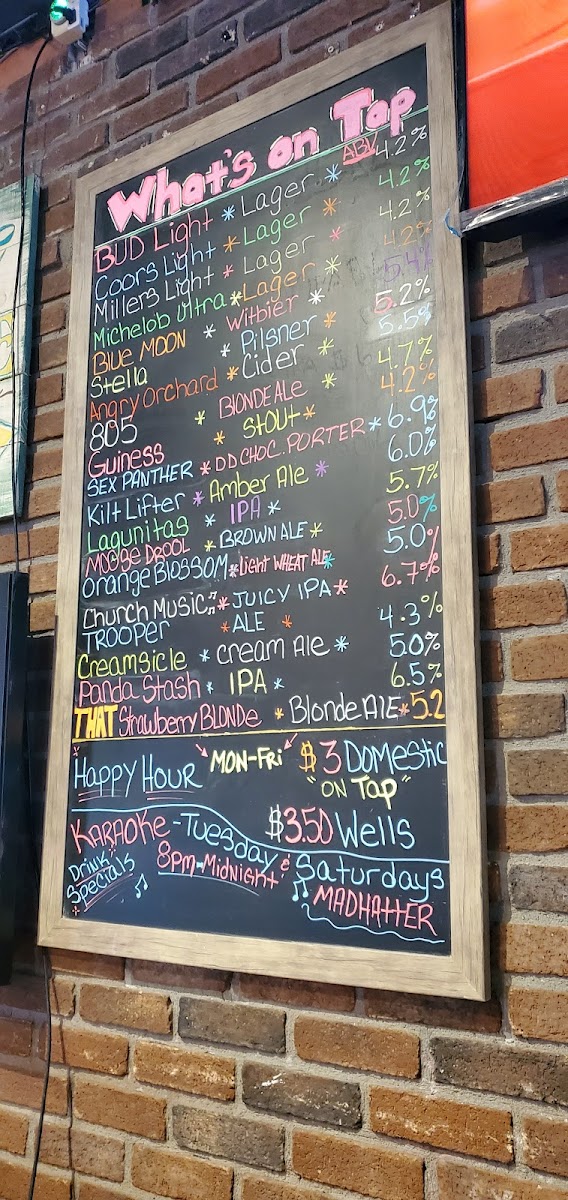 What's on Tap
ABV
BUD Light * Lager * 4.2%
Coors Light * Lager * 4.2%
Millers Light * Lager * 4.2%
Michelob Ultra * Lager * 4.2%
Blue MOON * Witbier * 5.4%
Stella * Pilsner * 5.2%
Angry Orchard * Cider * 5.5%
805 * BLONDE Ale * 4.7%
Guiness * STOUT * 4.2%
SEX PANTHER * DD CHOC. PORTER * 6.9%
Kilt Lifter * Amber Ale * 6.0%
Lagunitas * IPA * 5.7%
MOOSE DROOL * BROWN ALE * 5.0%
Orange BLOSSOM * Light WHEAT ALE * 5.0%
Church Music * JUICY IPA * 6.7%
TROOPER * ALE * 4.3%
Creamsicle * Cream Ale * 5.0%
Panda Stash * IPA * 6.5%
THAT Strawberry BLONDe * Blonde ALE * 5.2
Happy Hour MON-Fri $3 DOMEStic
"ON Tap"
$3.50 Wells
KARAOKe - Tuesday & Saturdays
8pm-Midnight
Drink Specials
MADHAttER